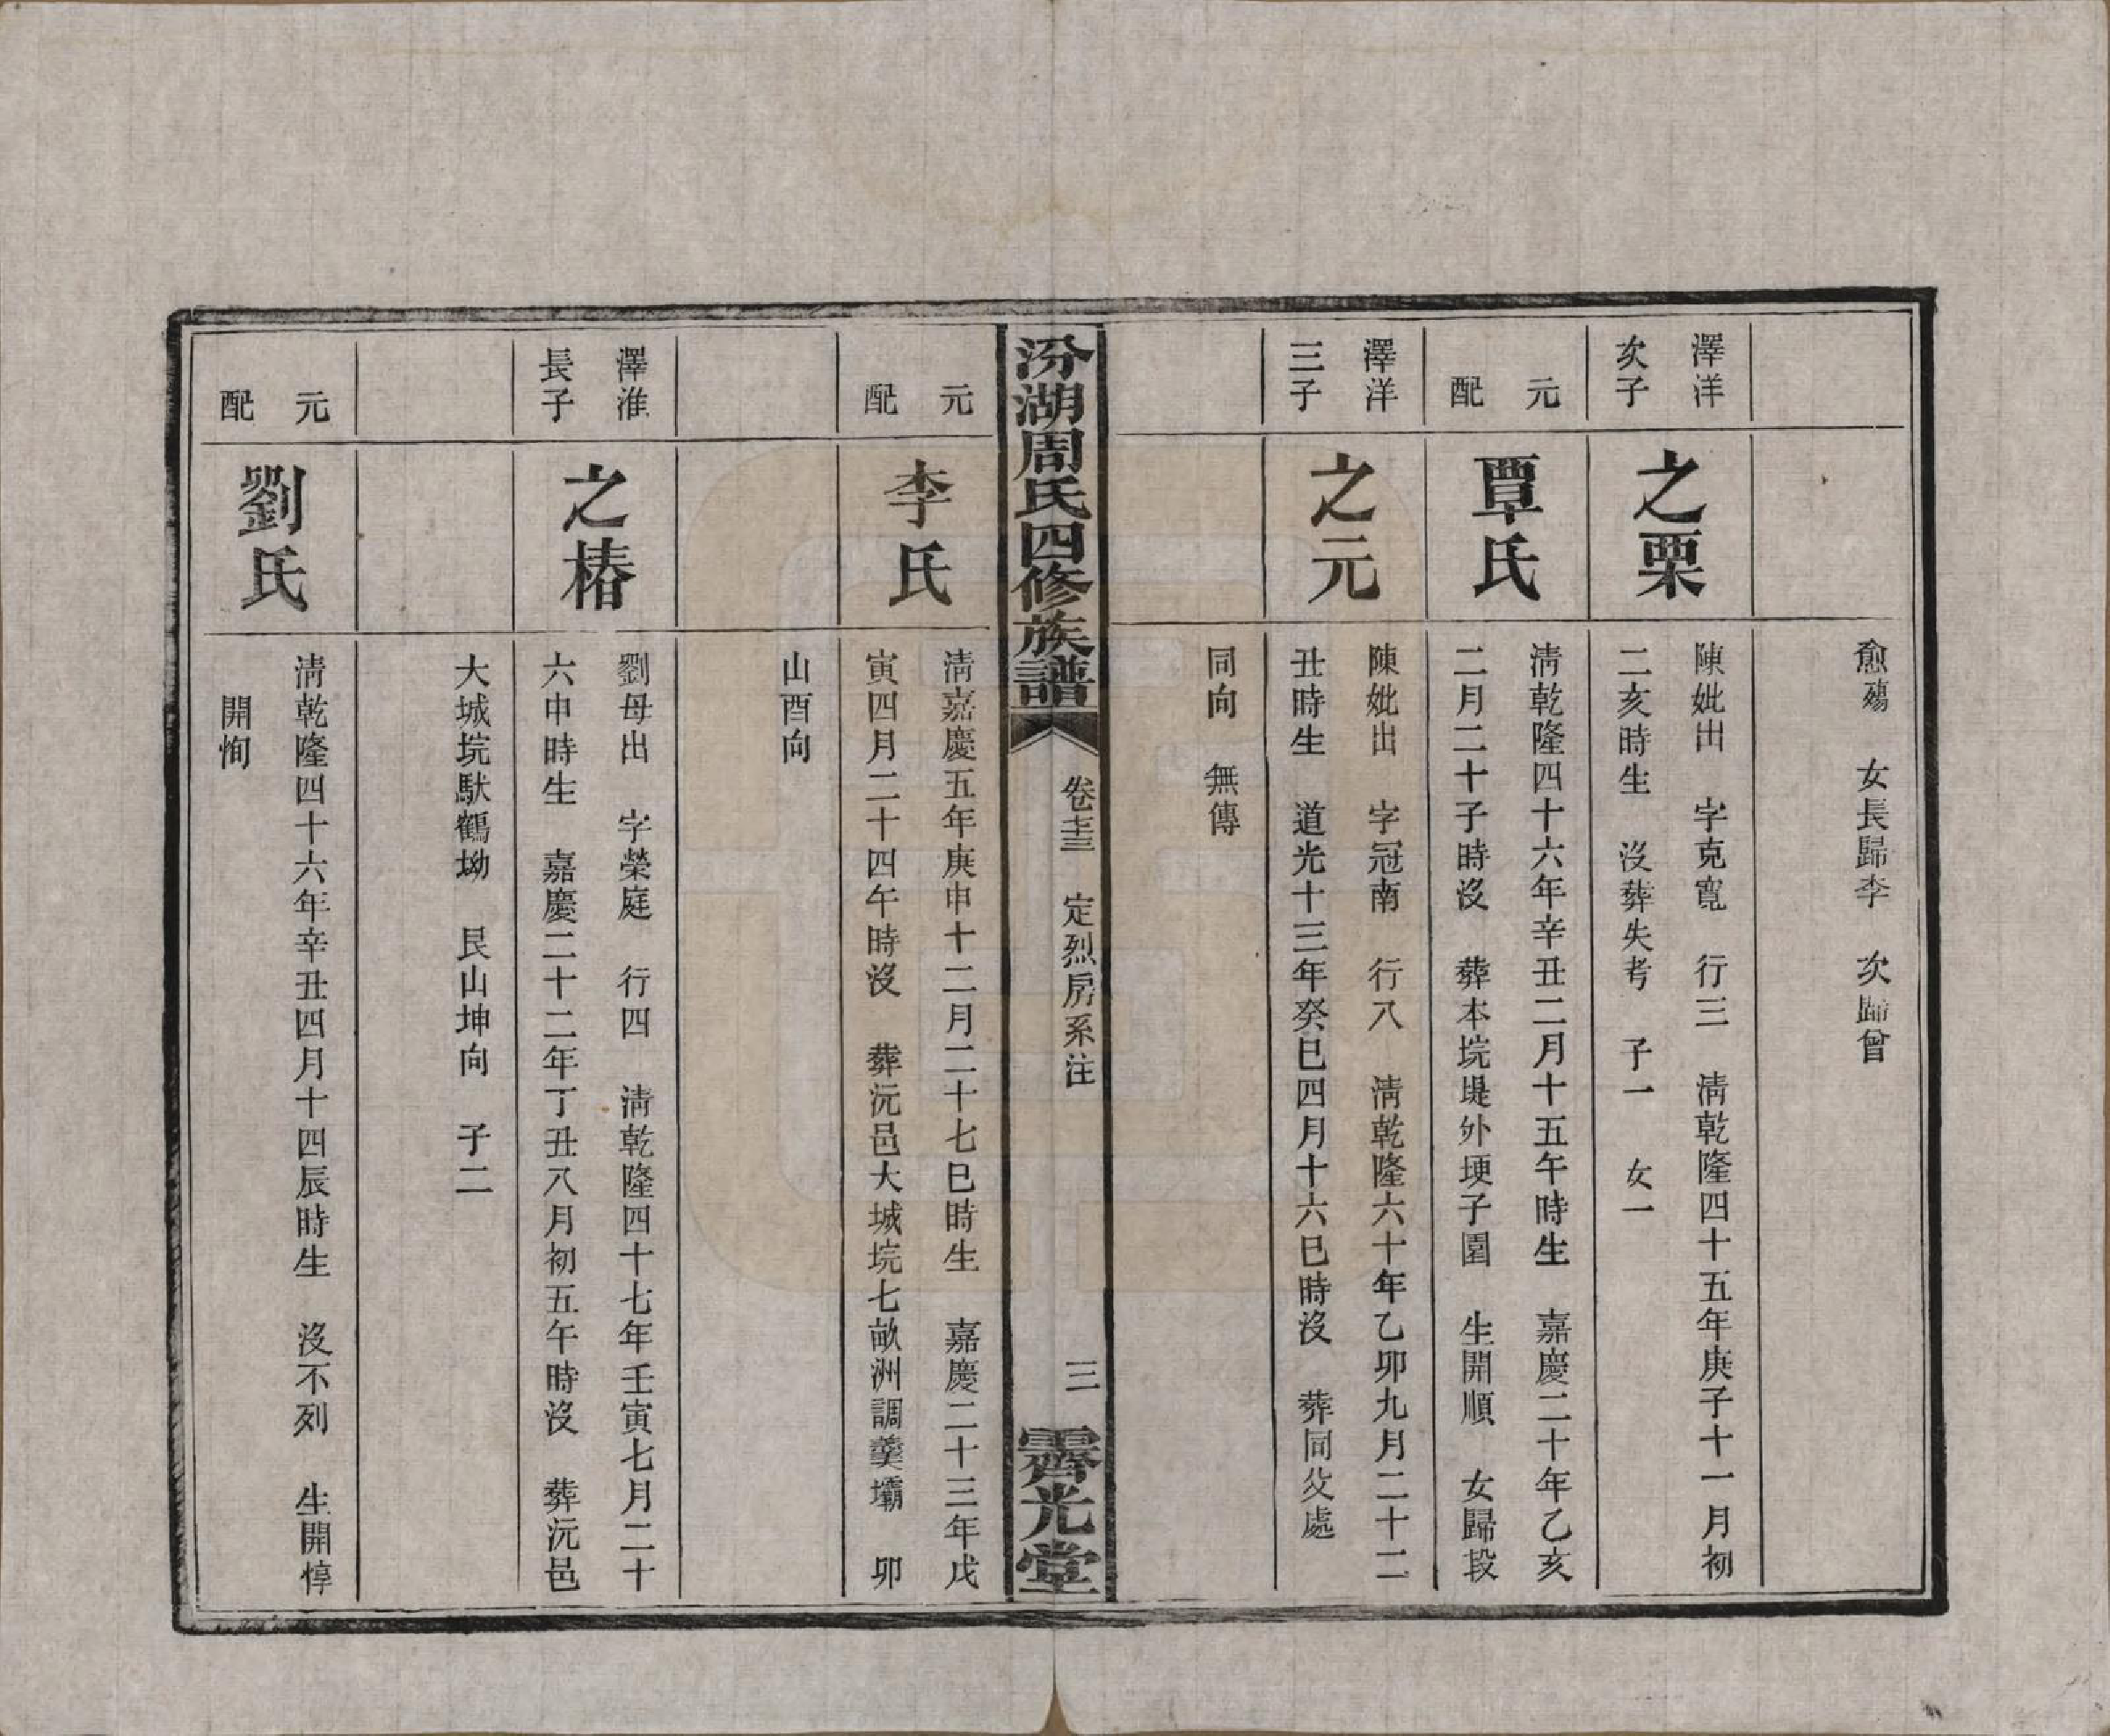 愈殤　女長歸李　次歸曾
澤洋
次子
之栗
陳妣出　字克寬　行三　清乾隆四十五年庚子十一月初
二亥時生　沒葬失考　子一　女一
元
配
覃氏
清乾隆四十六年辛丑二月十五午時生　嘉慶二十年乙亥
二月二十子時沒　葬本垸堤外埂子園　生開順　女歸段
澤洋
三子
之元
陳妣出　字冠南　行八　清乾隆六十年乙卯九月二十二
丑時生　道光十三年癸巳四月十六巳時沒　葬同父處
同向　無傳
汾湖周氏四修族譜
卷十三　定烈房系注
三
霽光堂
元
配
李氏
清嘉慶五年庚申十二月二十七巳時生　嘉慶二十三年戊
寅四月二十四午時沒　葬沅邑大城垸七畝洲調羹壩　卯
山酉向
澤淮
長子
之椿
劉母出　字榮庭　行四　清乾隆四十七年壬寅七月二十
六申時生　嘉慶二十二年丁丑八月初五午時沒　葬沅邑
大城垸馱鶴坳　艮山坤向　子二
元
配
劉氏
清乾隆四十六年辛丑四月十四辰時生　沒不列　生開惇
開恂